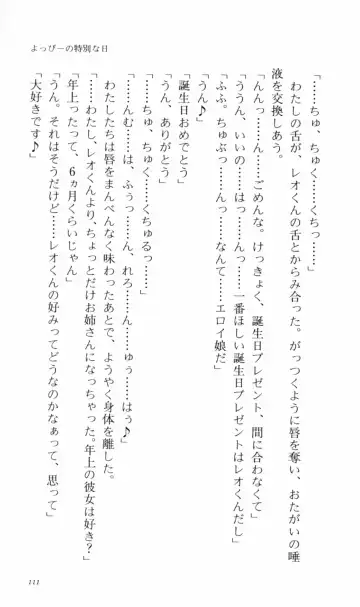 よっぴーの特別な日
「……ちゅ、ちゅく……くちっ……」
わたしの舌が、レオくんの舌とからみ合った。がっつくように唇を奪い、おたがいの唾
液を交換しあう。
「んんっ……ん……ごめんな。けっきょく、誕生日プレゼント、間に合わなくて」
「ううん、いいの……はっ……んっ……一番ほしい誕生日プレゼントはレオくんだし」
「ふふ。ちゅぷっ……んっ……なんて……エロイ娘だ」
「うん♪」
「誕生日おめでとう」
「うん、ありがとう」
「……ちゅ、ちゅく……くちゅるっ……」
「……んむ……は、ふぅっ……ん、れろ……ん……ゅぅ……はぅ♪」
わたしたちは唇をまんべんなく味わったあとで、ようやく身体を離した。
「……わたし、レオくんより、ちょっとだけお姉さんになっちゃった。年上の彼女は好き？」
「年上ったって、6ヵ月くらいじゃん」
「うん。それはそうだけど……レオくんの好みってどうなのかなぁって、思って」
「大好きです♪」
111